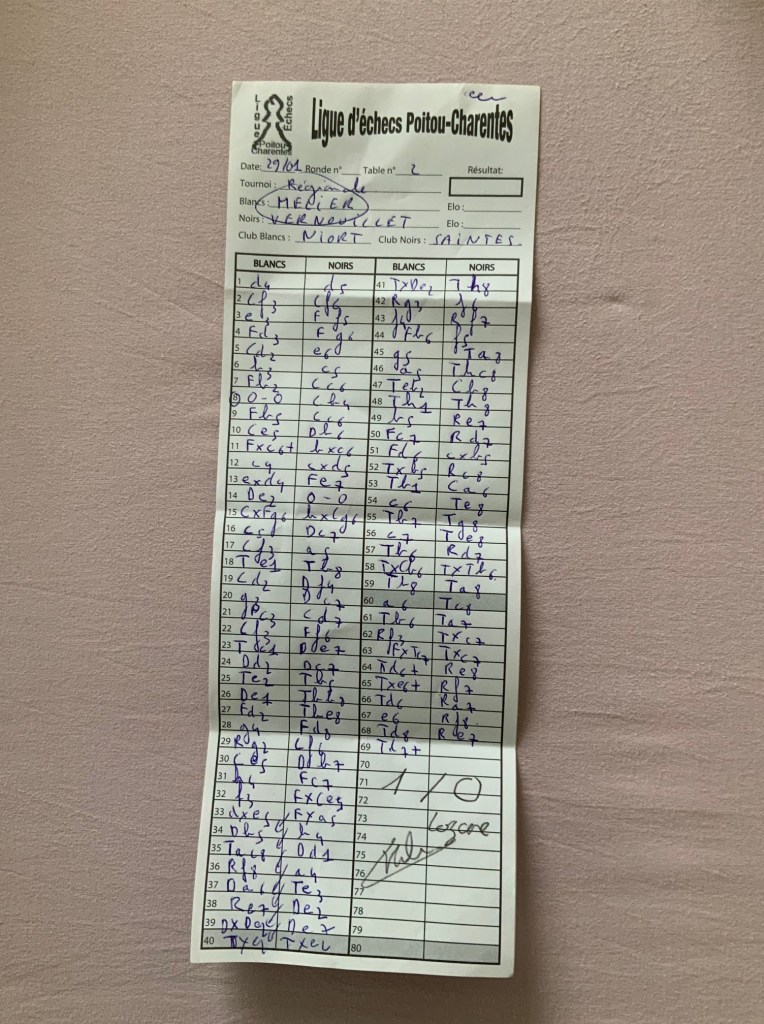 Ligue Echecs
Poitou Charentes
Ligue d'échecs Poitou-Charentes
Date: 29/01 Ronde n° Table n° 2 Résultat:
Tournoi : Régionale
Blancs : MELIER Elo :
Noirs : VERNOUILLET Elo :
Club Blancs : NIORT Club Noirs : SAINTES
BLANCS NOIRS BLANCS NOIRS
1 d4 d5 41 TxDe2 Th8
2 Cf3 Cf6 42 Rg3 f6
3 e3 Ff5 43 f4 Rf7
4 Fd3 Fg6 44 Fb6 f5
5 Cd2 e6 45 g5 Ta8
6 b3 c5 46 a5 Thc8
7 Fb2 Cc6 47 Teb2 Cb8
8 0-0 Cb4 48 Th1 Th8
9 Fb5 Cc6 49 b5 Re7
10 Ce5 Db6 50 Fc7 Rd7
11 Fxc6+ bxc6 51 Fd6 cxb5
12 c4 cxd5 52 Txb5 Rc8
13 exd4 Fe7 53 Tb1 Ca6
14 De2 0-0 54 c6 Te8
15 CxFg6 hxCg6 55 Tb7 Tg8
16 c5 Dc7 56 c7 Te8
17 Cf3 a5 57 Tb6 Rd7
18 Te1 Tb8 58 TxCb6 TxTb6
19 Cd2 Df4 59 Tb8 Ta8
20 g3 Dc7 60 a6 Tc8
21 Fc3 Cd7 61 Tb6 Ta7
22 Cf3 Ff6 62 Rf3 Txc7
23 Tac1 De7 63 FxTc7 Txc7
24 Dd2 Dc7 64 Td6+ Re8
25 Te2 Tb5 65 Txe6+ Rf7
26 De1 Tb3 66 Td6 Ra7
27 Fd2 Tbe8 67 e6 Rf8
28 g4 Fd8 68 Td8 Re7
29 Rg2 Cf6 69 Td7+
30 Ce5 Db7 70
31 h4 Fc7 71 1/0
32 f3 FxCe5 72
33 dxe5 Fxa5 73
34 Db5 h4 74
35 Tac8 Dd1 75
36 Rf8 a4 76
37 Da6 Te3 77
38 Re7 De2 78
39 DxDe2 De7 79
40 Txe2 80